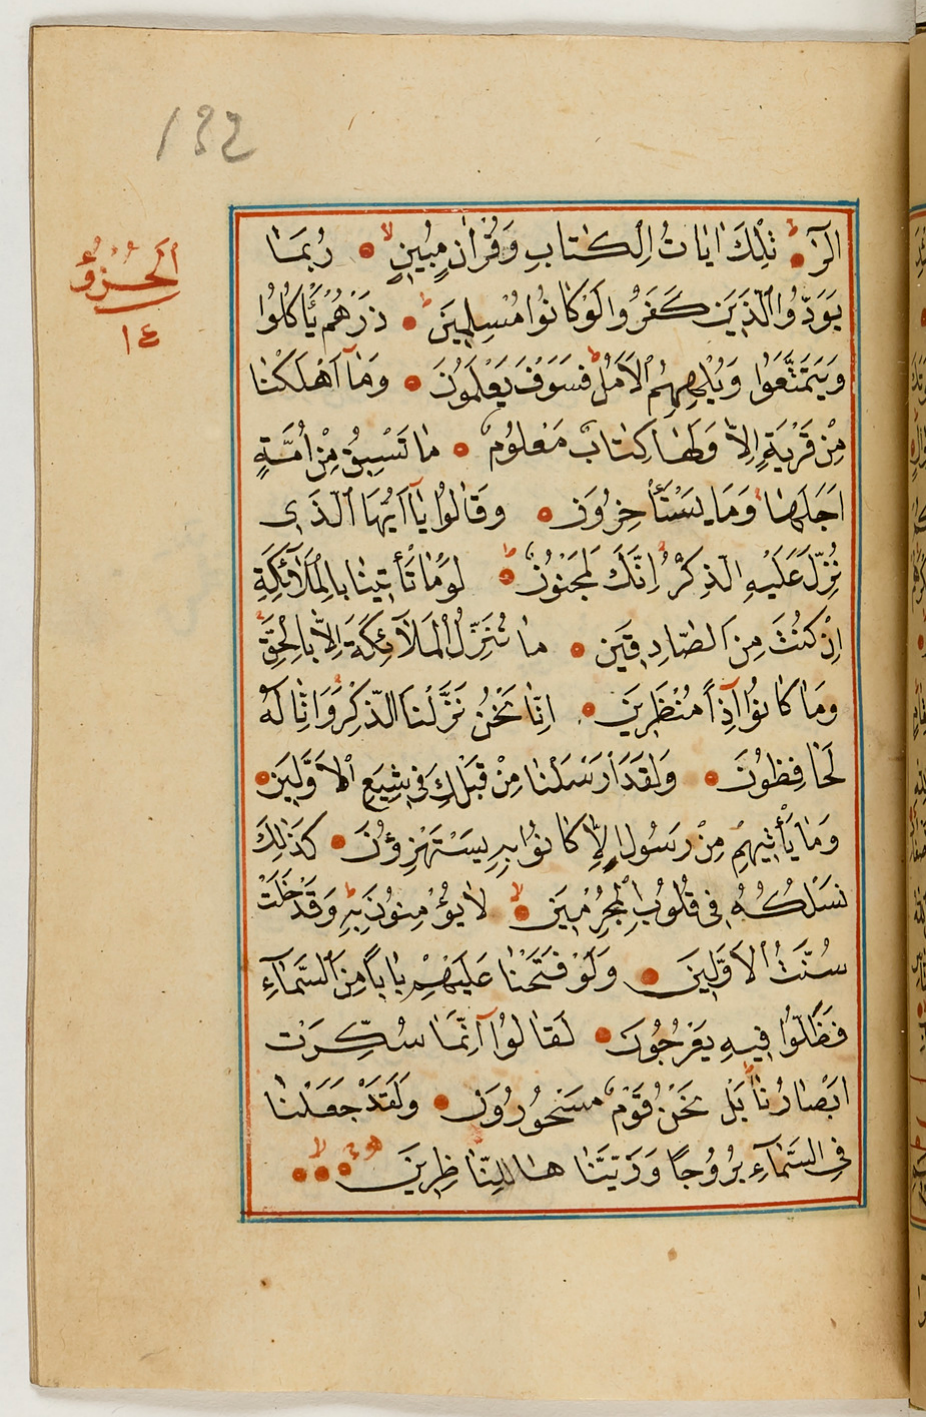 132
اَلْجُزْؤُ
١٤
الٓرٰ تِلْكَ اٰيَاتُ الْكِتَابِ وَقُرْاٰنٍ مُبِينٍ رُبَمَا
يَوَدُّ الَّذِينَ كَفَرُوا لَوْ كَانُوا مُسْلِمِينَ ذَرْهُمْ يَأْكُلُوا
وَيَتَمَتَّعُوا وَيُلْهِهِمُ الْاَمَلُ فَسَوْفَ يَعْلَمُونَ وَمَٓا اَهْلَكْنَا
مِنْ قَرْيَةٍ اِلَّا وَلَهَا كِتَابٌ مَعْلُومٌ مَا تَسْبِقُ مِنْ اُمَّةٍ
اَجَلَهَا وَمَا يَسْتَأْخِرُونَ وَقَالُوا يَٓا اَيُّهَا الَّذِى
نُزِّلَ عَلَيْهِ الذِّكْرُ اِنَّكَ لَمَجْنُونٌ لَوْمَا تَأْتِينَا بِالْمَلٰٓائِكَةِ
اِنْ كُنْتَ مِنَ الصَّادِقِينَ مَا نُنَزِّلُ الْمَلٰٓائِكَةَ اِلَّا بِالْحَقِّ
وَمَا كَانُوا اِذًا مُنْظَرِينَ اِنَّا نَحْنُ نَزَّلْنَا الذِّكْرَ وَاِنَّا لَهُ
لَحَافِظُونَ وَلَقَدْ اَرْسَلْنَا مِنْ قَبْلِكَ فِى شِيَعِ الْاَوَّلِينَ
وَمَا يَأْتِيهِمْ مِنْ رَسُولٍ اِلَّا كَانُوا بِهِ يَسْتَهْزِؤُنَ كَذٰلِكَ
نَسْلُكُهُ فِى قُلُوبِ الْمُجْرِمِينَ لَا يُؤْمِنُونَ بِهِ وَقَدْ خَلَتْ
سُنَّتُ الْاَوَّلِينَ وَلَوْ فَتَحْنَا عَلَيْهِمْ بَابًا مِنَ السَّمَٓاءِ
فَظَلُّوا فِيهِ يَعْرُجُونَ لَقَالُٓوا اِنَّمَا سُكِّرَتْ
اَبْصَارُنَا بَلْ نَحْنُ قَوْمٌ مَسْحُورُونَ وَلَقَدْ جَعَلْنَا
فِى السَّمَٓاءِ بُرُوجًا وَزَيَّنَّاهَا لِلنَّاظِرِينَ